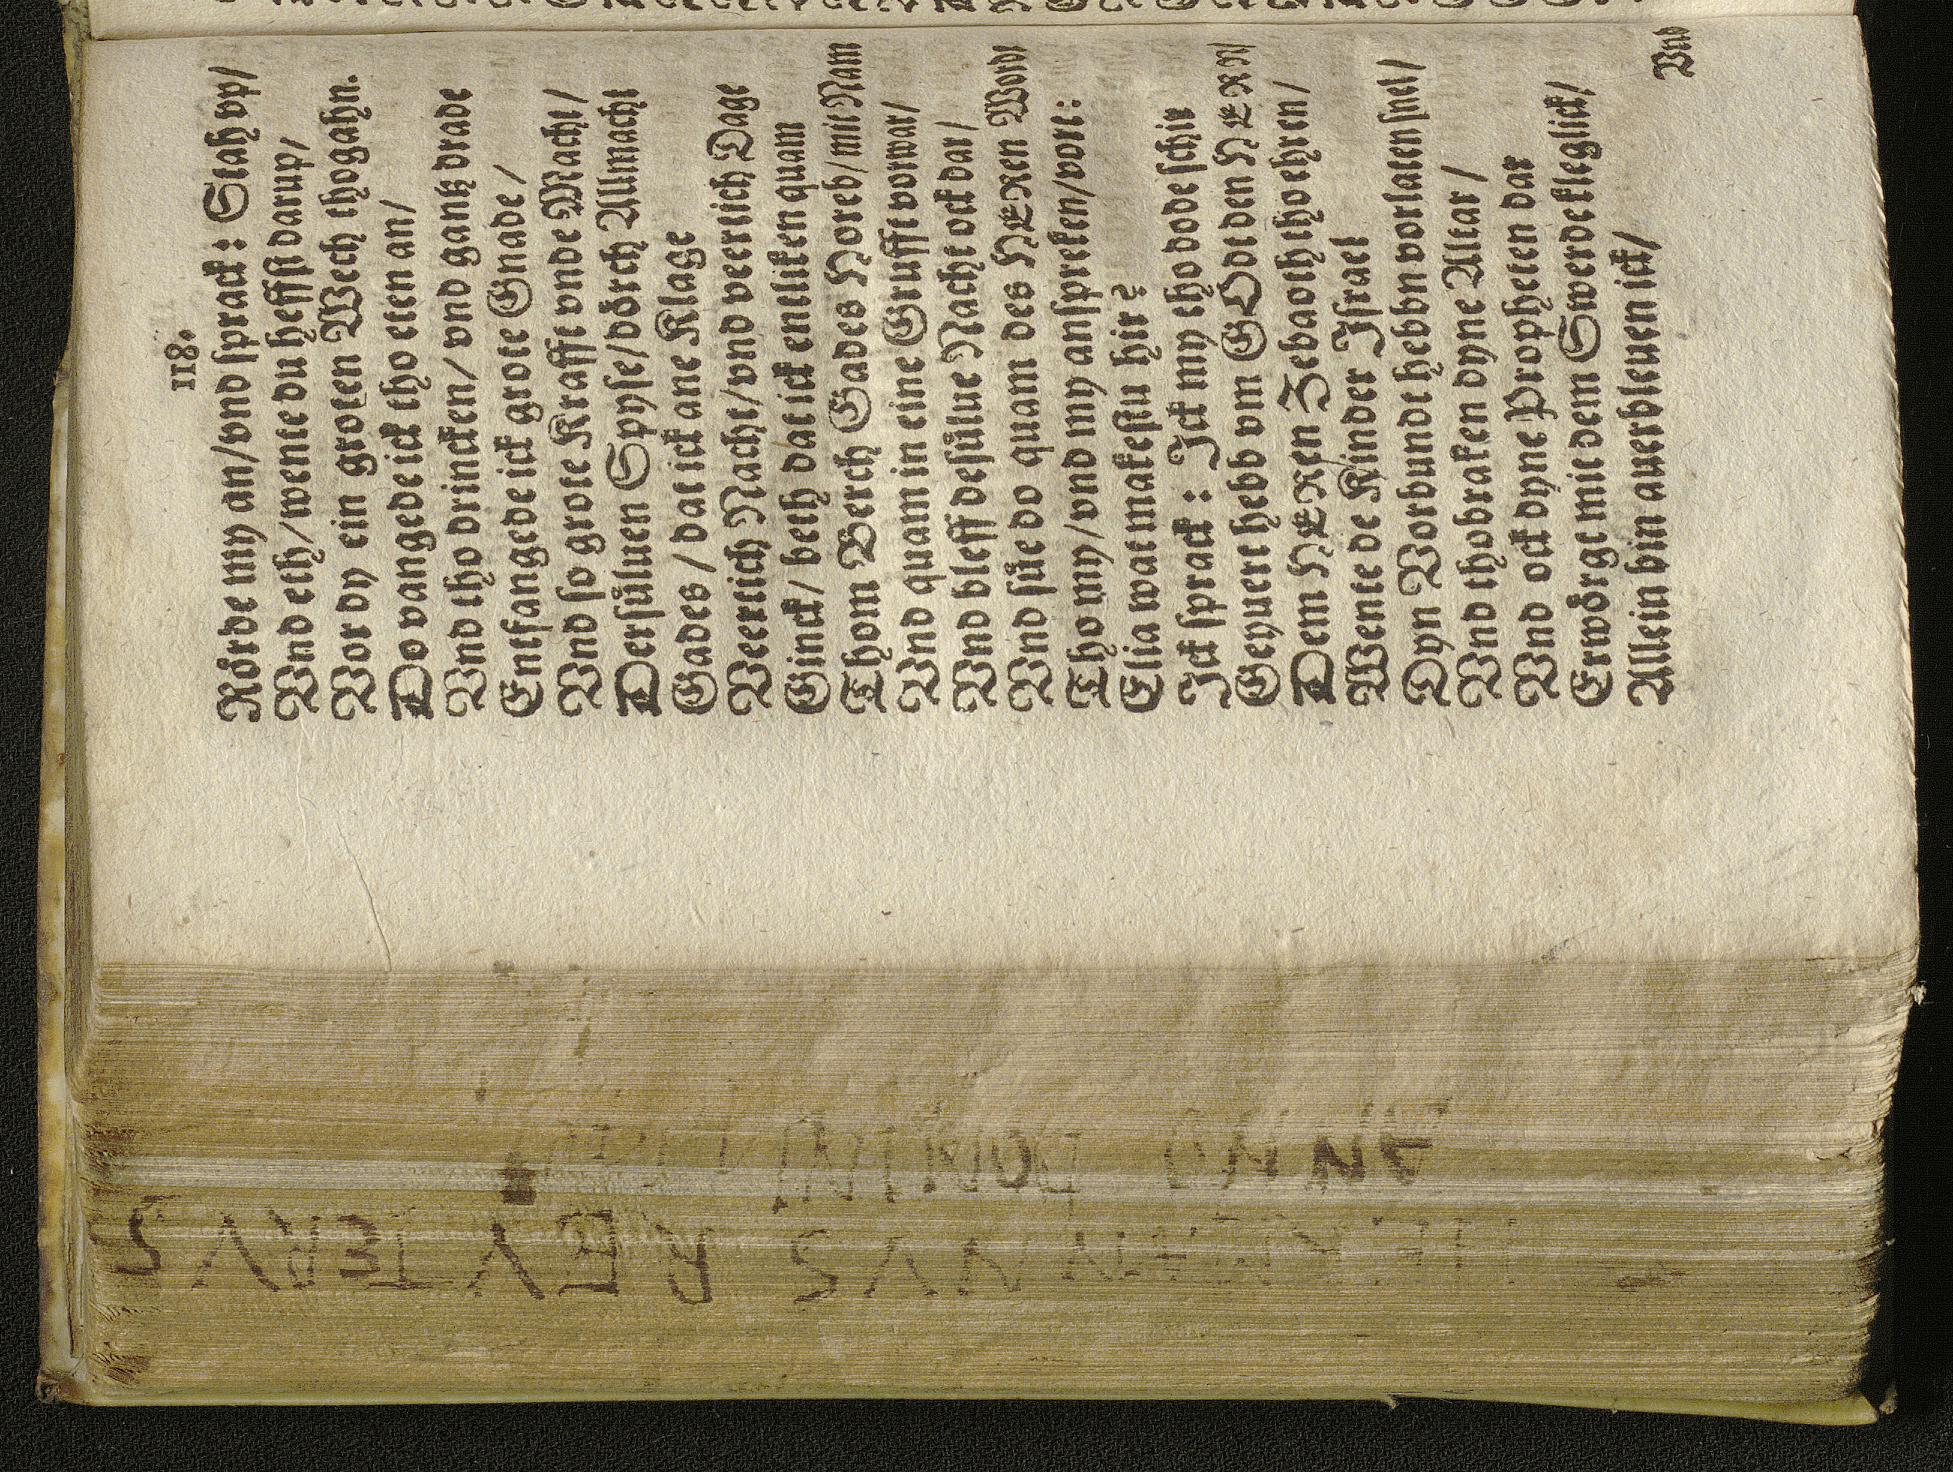 118.
Rörde my an/ vnd sprack: Stah vp/
Vnd eth/ wente du heffst darup/
Vor dy ein groten Wech thogahn.
Do vangede ick tho eten an/
Vnd tho drincken/ vnd gantz drade
Entfangede ick grote Gnade/
Vnd so grote Krafft vnde Macht/
Dersüluen Spyse/ dörch Allmacht
Gades/ dat ick ane Klage
Veertich Nacht/ vnd veertich Dage
Ginck/ beth dat ick entliken quam
Thom Berch Gades Horeb/ mit Nam
Vnd quam in eine Grufft vorwar/
Vnd bleff desülue Nacht ock dar/
Vnd süe do quam des HEREN Wordt
Tho my/ vnd my anspreken/ vort:
Elia wat makestu hir?
Ick sprack: Ick my tho dode schir
Geyuert hebb vm GOdt den HERRN/
Dem HEREN Zebaoth tho ehren/
Wente de Kinder Israel
Dyn Vorbundt hebbn vorlaten snel/
Vnd thobraken dyne Alltar/
Vnd ock dyne Propheten dar
Erwörgt mit dem Swerde kleglick/
Allein bin auerbleuen ick/
Vnd
ANNO DOMINI
HERMANNVS REXTERVS